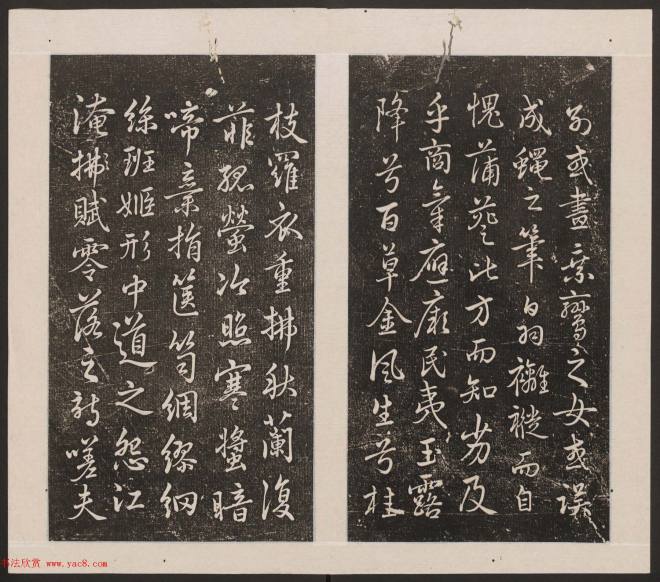 或畫乘鸞之女或誤
成蠅之筆白羽襹褷而自
愧蒲葵比方而知劣及
乎商氣應厥民夷玉露
降兮百草金風生兮桂
枝羅衣重拂秋蘭復
菲孤螢冷照寒螿暗
啼棄捐篋笥綢繆網
絲班姬形中道之怨江
淹拂賦零落之詩嗟夫
书法欣赏 www.yac8.com